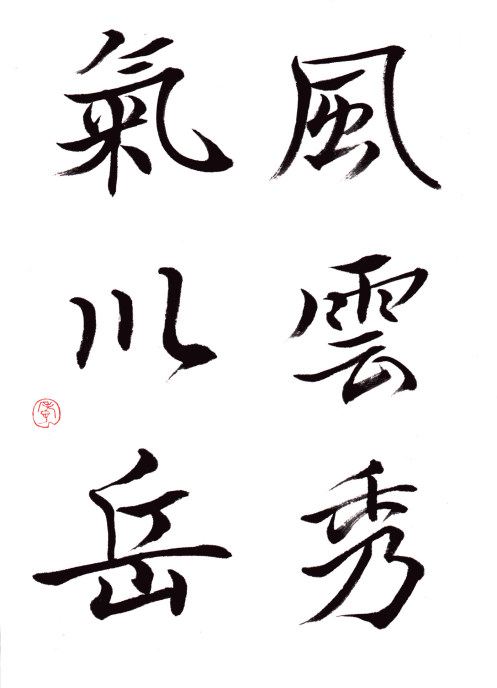 風雲秀
氣川岳